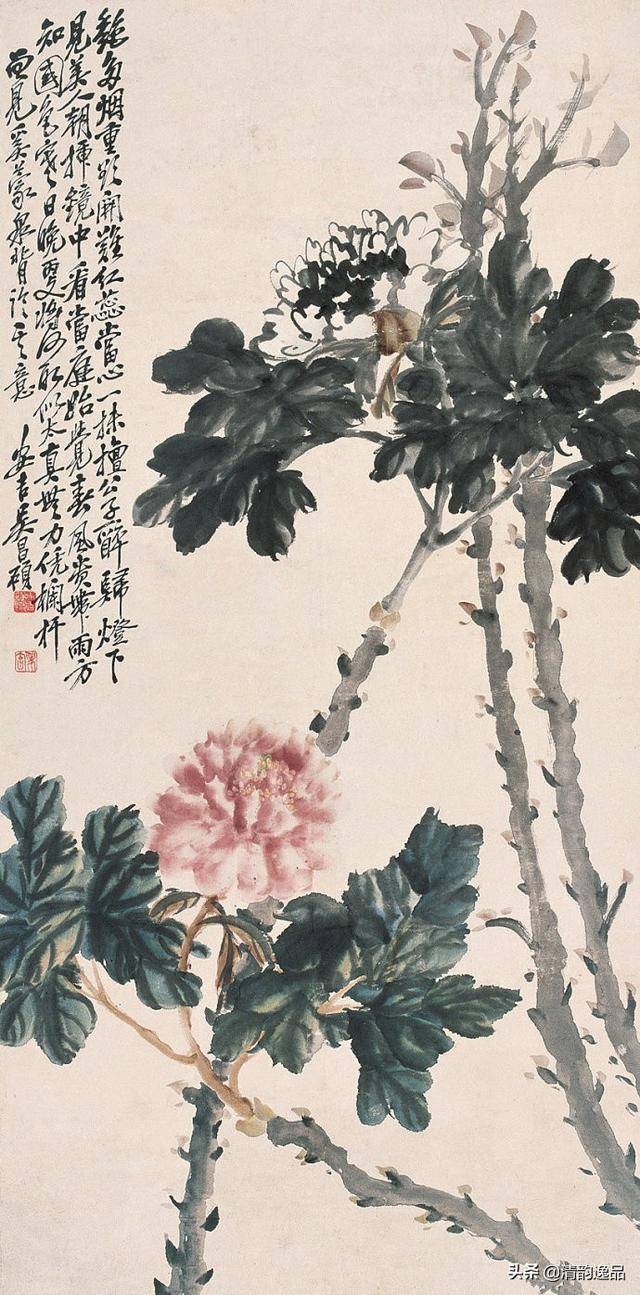 艷多烟重欲開難红蕊當心一抹檀公子醉歸燈下
見美人朝插鏡中看當庭始覺春風贵帶雨方
知國色寒日晚更將何所似太真無力凭欄杆
曾見奚蒙泉背臨其意 安吉吳昌碩
头条 @清韵逸品